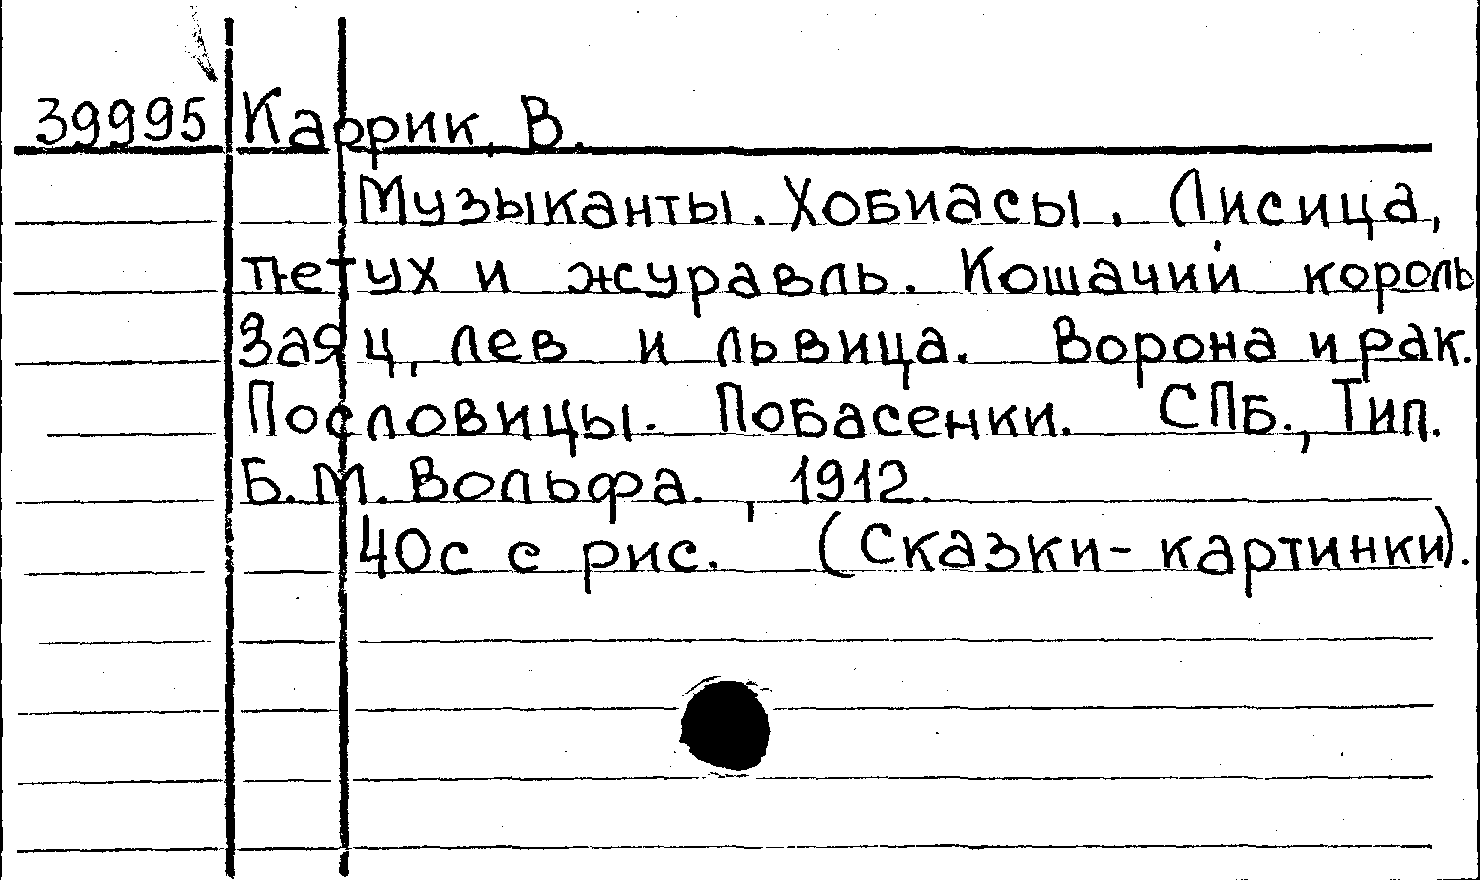 39995 Каррик, В.
Музыканты. Хобиасы. Лисица,
петух и журавль. Кошачий король
Заяц, лев и львица. Ворона и рак.
Пословицы. Побасенки. СПБ., Тип.
Б.М. Вольфа., 1912.
40с с рис. (Сказки-картинки).